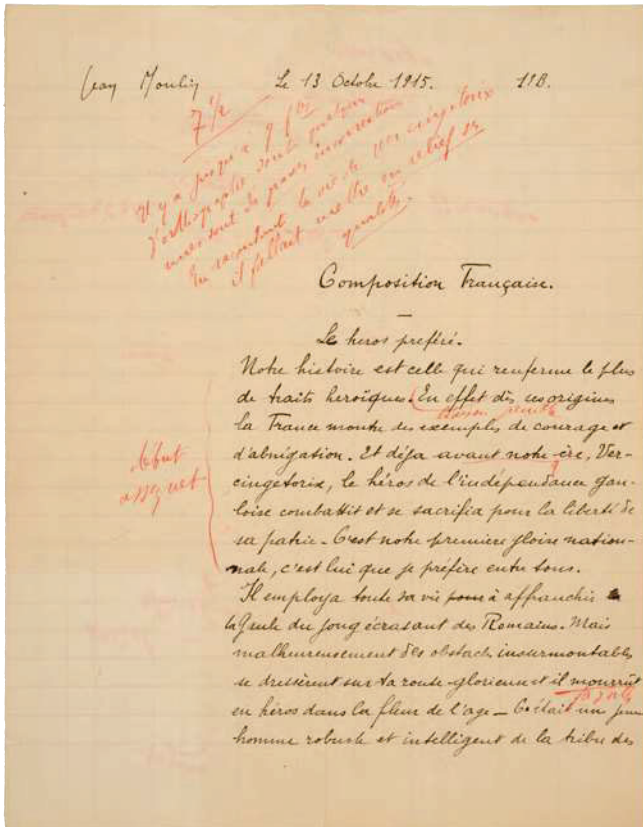 Jean Moulin Le 13 Octobre 1915. IIB.
7 1/2
Il y a jusqu'à 9 f
d'orthographe dont quelques
unes sont de graves incorrections
En racontant la vie de Vercingétorix
il fallait mettre en relief ses
qualités.
Composition Française.
Le heros préféré.
Notre histoire est celle qui renferme le plus
de traits heroïques. En effet dès ses origines
la France montre des exemples de courage et
d'abnigation. Et déja avant notre ère, Ver-
début
assez net
cingetorix, le héros de l'indépendance gau-
loise combattit et se sacrifia pour la liberté de
sa patrie. C'est notre premiere gloire nation-
nale, c'est lui que je préfère entre tous.
Il employa toute sa vie pour à affranchir
la Gaule du joug écrasant des Romains. Mais
malheureusement des obstacles insurmontables
se dressèrent sur sa route glorieuse et il mourrût
en héros dans la fleur de l'age - C'était un jeune
homme robuste et intelligent de la tribu des